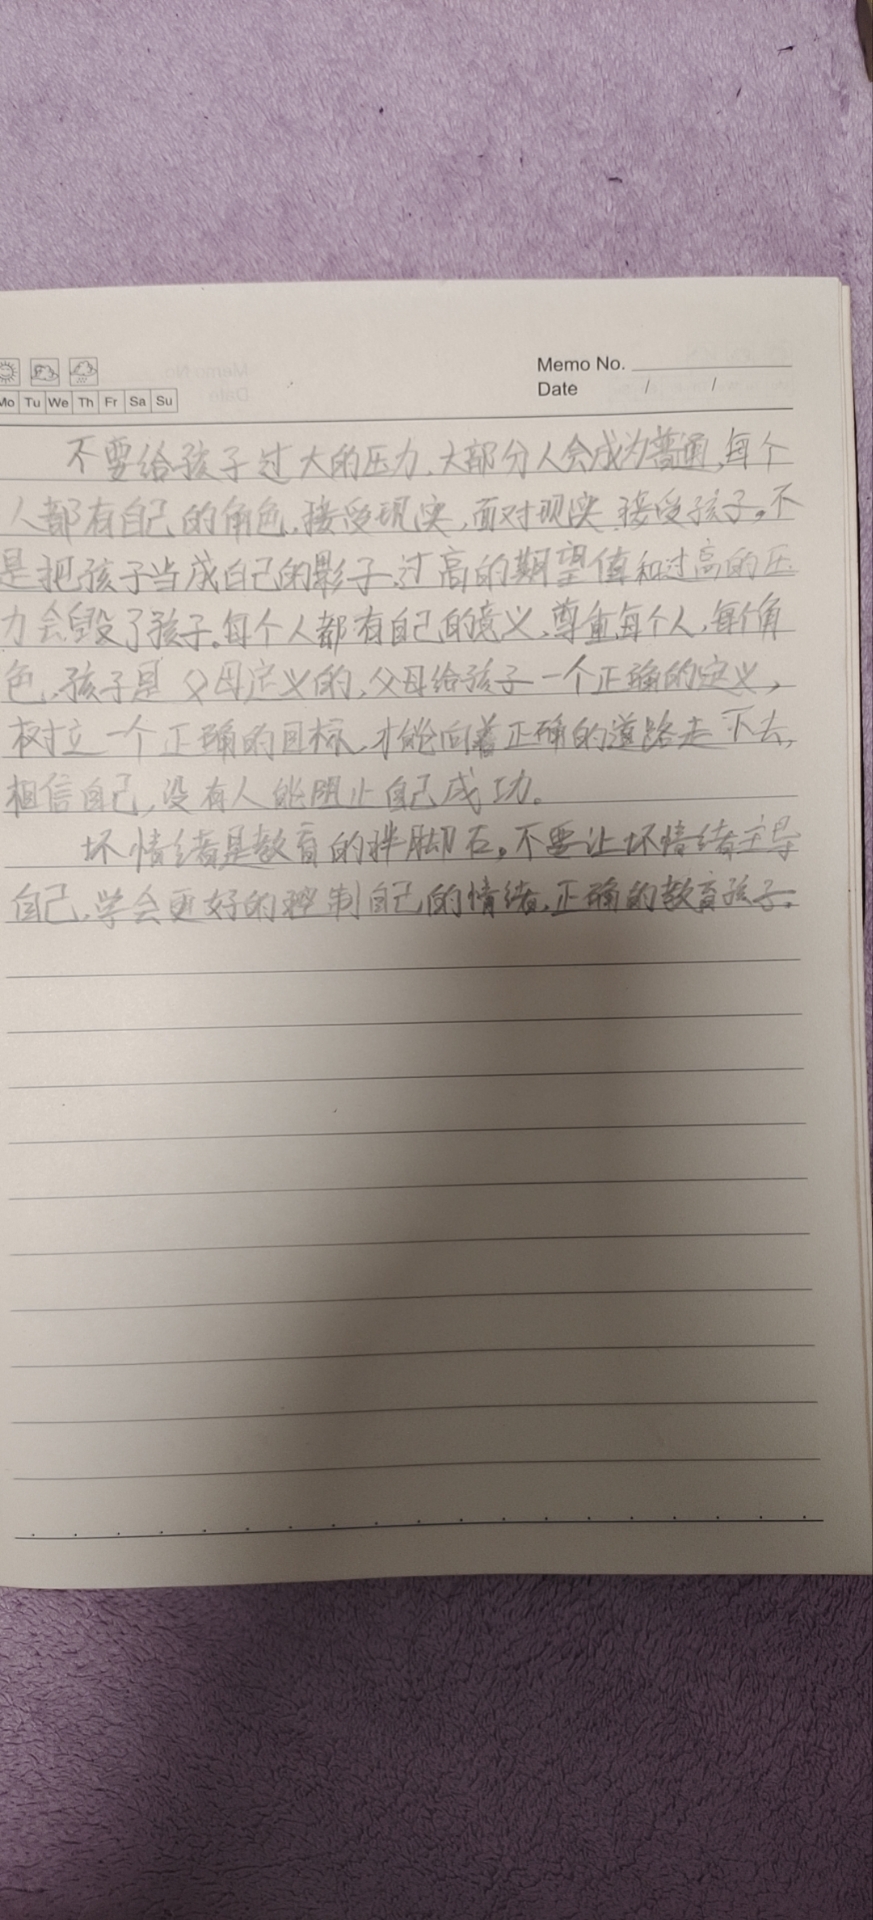 Memo No.
Mo Tu We Th Fr Sa Su
Date / /
不要给孩子过大的压力,大部分人会成为普通,每个
人都有自己的角色,接受现实,面对现实,接受孩子,不
是把孩子当成自己的影子,过高的期望值和过高的压
力会毁了孩子。每个人都有自己的意义,尊重每个人,每个角
色,孩子是父母定义的,父母给孩子一个正确的定义,
树立一个正确的目标,才能向着正确的道路走下去,
相信自己,没有人能阻止自己成功。
坏情绪是教育的拌脚石,不要让坏情绪主导
自己,学会更好的控制自己的情绪,正确的教育孩子。